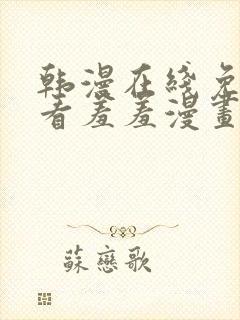 韩漫在线免
看羞羞漫畫
蘇戀歌